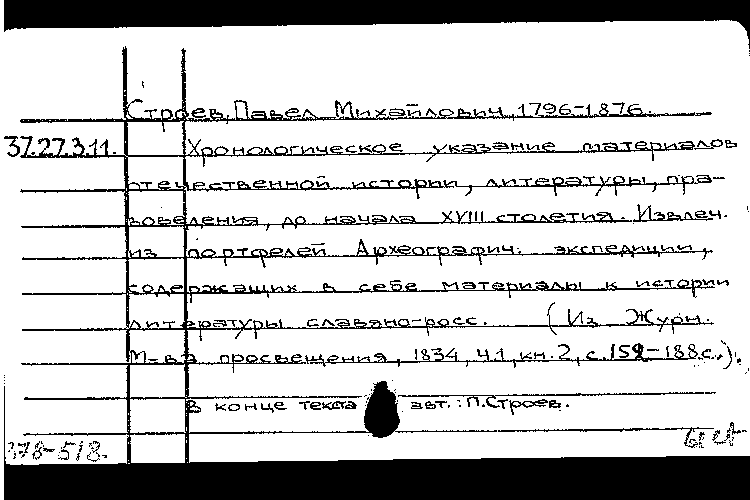 Строев, Павел Михайлович, 1796-1876.
37.27.3.11. Хронологическое указание материалов
отечественной истории, литературы, пра-
воведения, до начала XVIII столетия. Извлеч.
из портфелей Археографич. экспедиции,
содержащих в себе материалы к истории
литературы славяно-росс. (Из Журн.
М-ва просвещения, 1834, ч.1, кн.2, с.152-188с.).
В конце текста авт.: П.Строев.
378-518.